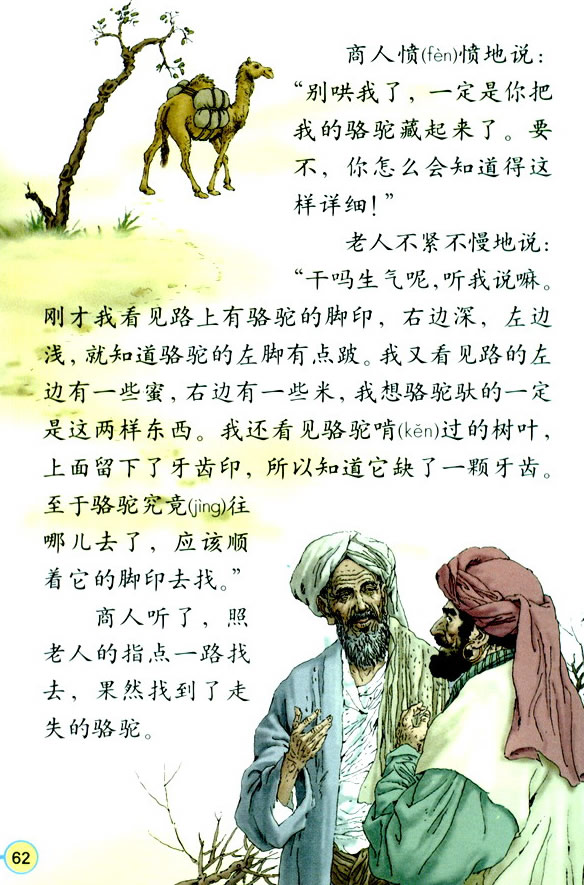 商人愤(fèn)愤地说：
“别哄我了，一定是你把
我的骆驼藏起来了。要
不，你怎么会知道得这
样详细！”
老人不紧不慢地说：
“干吗生气呢，听我说嘛。
刚才我看见路上有骆驼的脚印，右边深，左边
浅，就知道骆驼的左脚有点跛。我又看见路的左
边有一些蜜，右边有一些米，我想骆驼驮的一定
是这两样东西。我还看见骆驼啃(kěn)过的树叶，
上面留下了牙齿印，所以知道它缺了一颗牙齿。
至于骆驼究竟(jìng)往
哪儿去了，应该顺
着它的脚印去找。”
商人听了，照
老人的指点一路找
去，果然找到了走
失的骆驼。
62